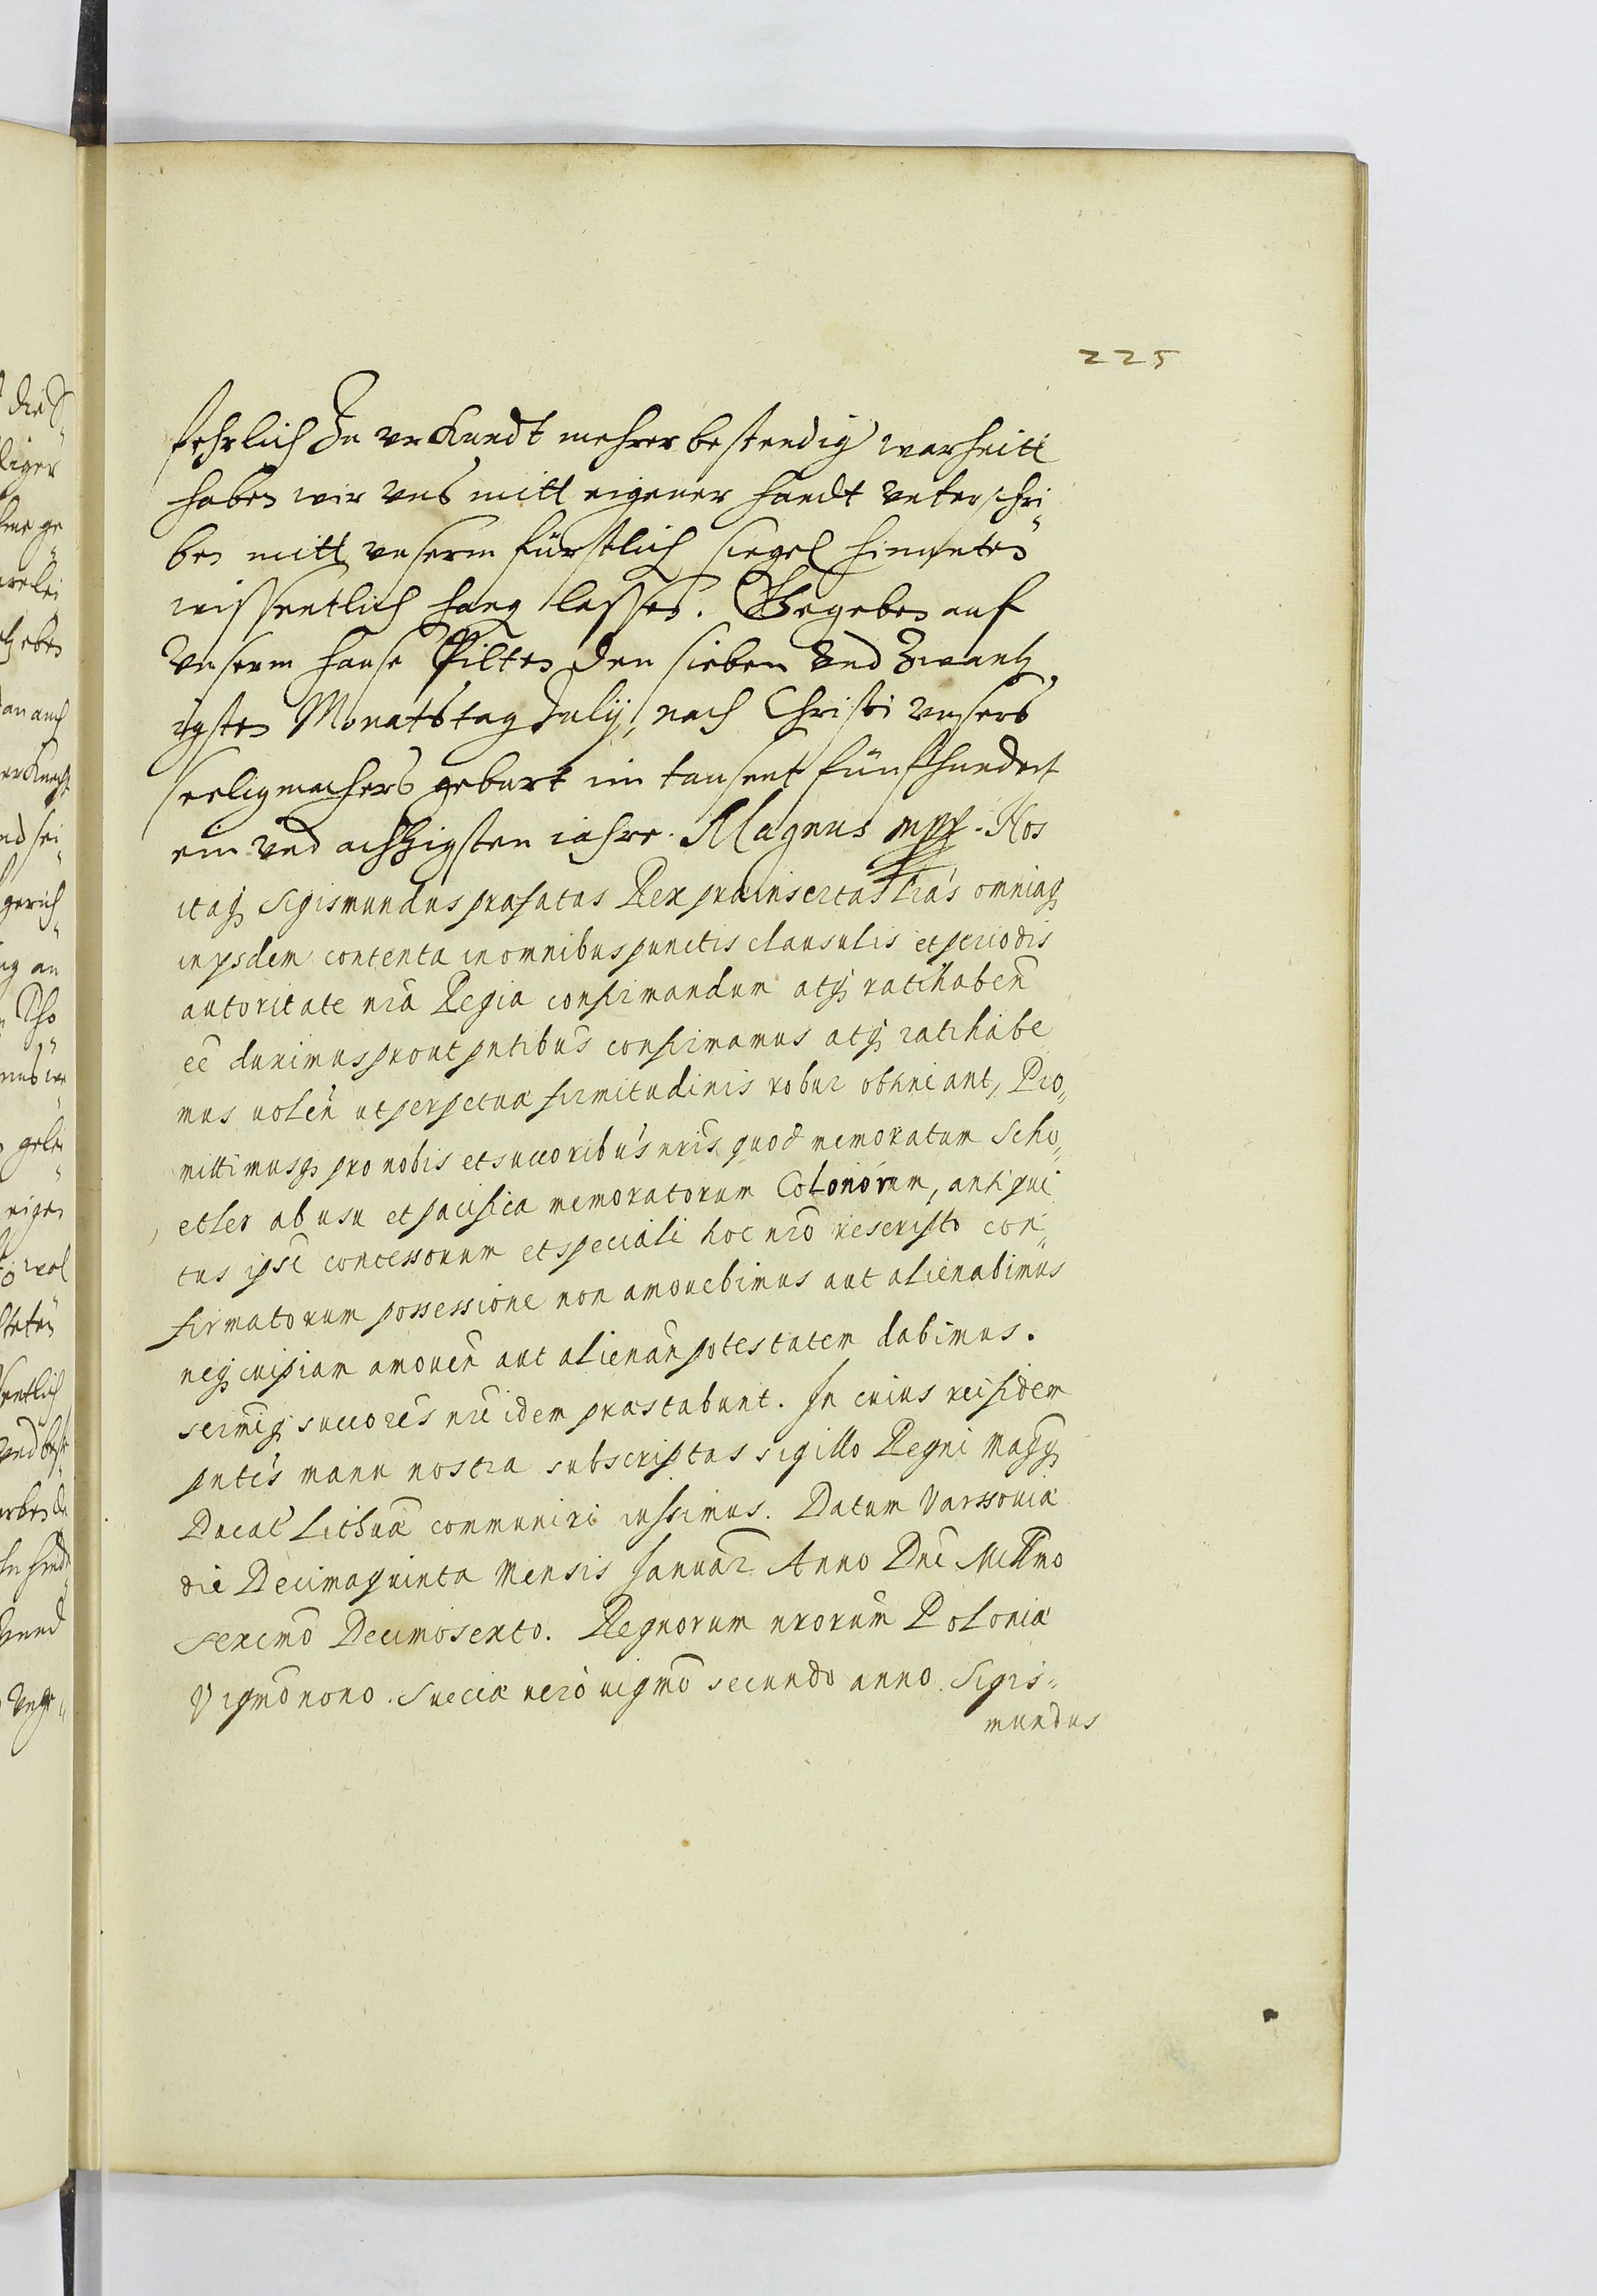 225
fehrlich Zu urkundt mehrer bestendig warheitt
haben wir vns mitt eigener handt vnterschri„
ben mitt vnserm fürstlich siegel hirunten
wissentlich hang lassen. Gegeben auf
Vnserm hause Pilten den sieben Vnd Zwantz„
igsten Monatstag Julij, nach Christi vnsers
seeligmachers geburt im tausent fünfhundert
ein Vnd achtzigsten iahre. Magnus mpp. Nos
itaq Sigismundus præfatus Rex præinsertas Lrás omniaq
in ysdem contenta in omnibus punctis clausulis et periodis
autoritate nrã Regia confirmandum atq ratihabeñ
eẽ duximus prout pntibus confirmamus atq ratihabe
mus uoleñ ut perpetuæ firmitudinis robur obtineant, Pro„
mittimusq pro nobis et succoribus nris quod memoratum Scho„
etler ab usu et pacifica memoratorum Colonorum, antiqui
tus ipsi concessorum et speciali hoc nrõ rescripto con„
firmatorum possessione non amouebimus aut alienabimus
neq cuipiam amoueñ aut alienañ potestatem dabimus.
sermiq succores nri idem præstabunt. In cuius rei fidem
pntes manu nostra subscriptas sigillo Regni Magq
Ducat Lithuæ communiri iussimus. Datum Varssouiæ
die Decimaquinta Mensis Januar Anno Dnĩ Millmo
sexcmo Decimosexto. Regnorum nrorum Poloniæ
Vigmo nono. Sueciæ uerò uigmo secundo anno. Sigis„
mundus